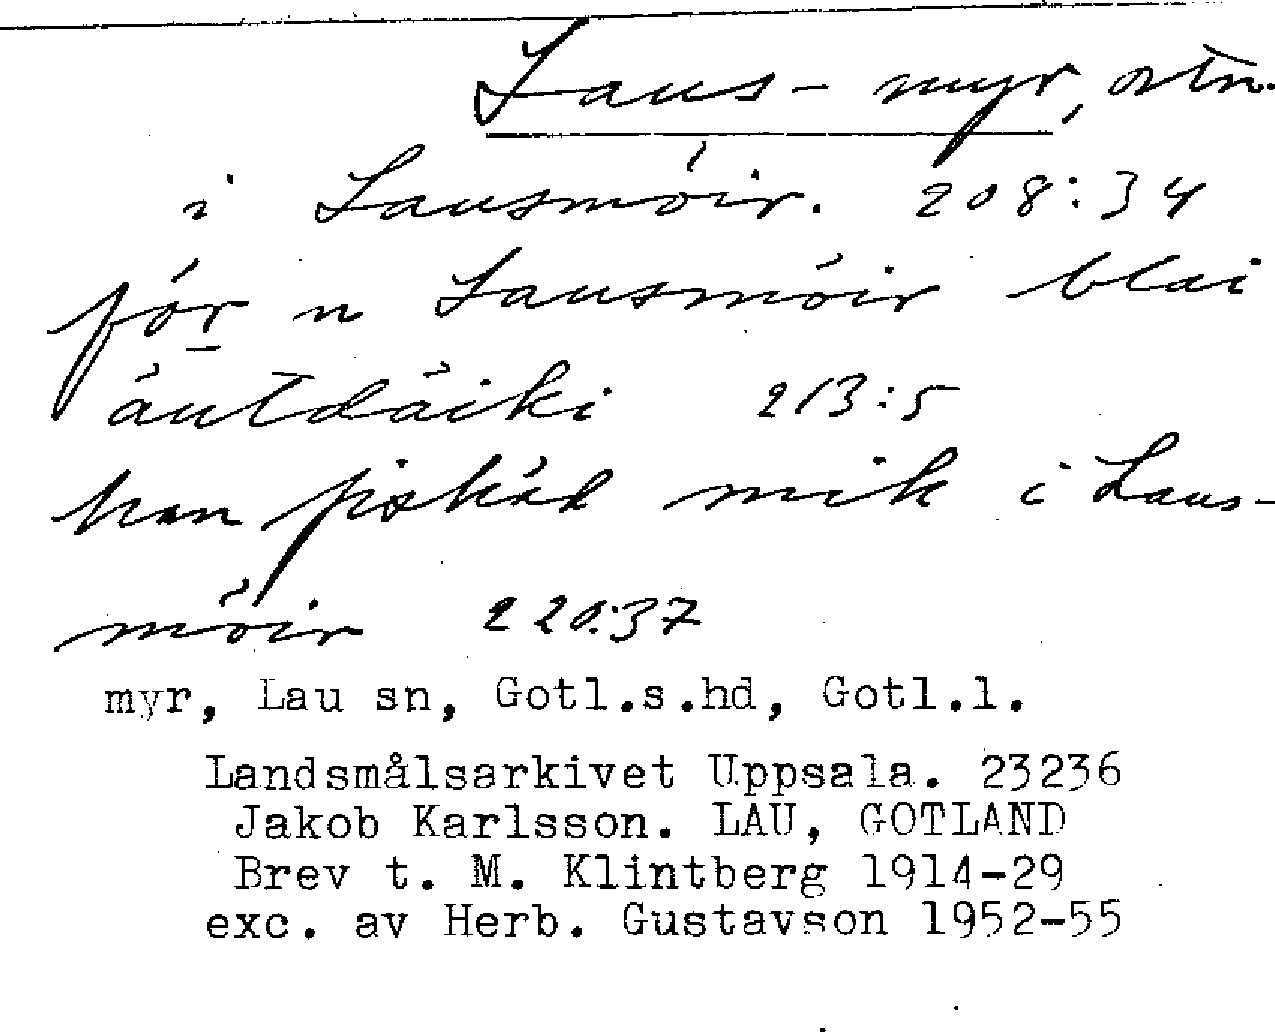 Laus-myr, ortn.
i Lausmóir. 208:34
fór n Lausmóir blai
áutdáiki 213:5
han fiskäd mik i Laus-
móir 220:37
myr, Lau sn, Gotl.s.hd, Gotl.l.
Landsmålsarkivet Uppsala. 23236
Jakob Karlsson. LAU, GOTLAND
Brev t. M. Klintberg 1914-29
exc. av Herb. Gustavson 1952-55